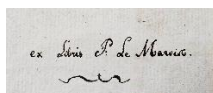 ex Lbris P. Le Marois.